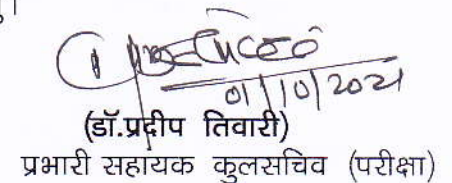 01/10/2021
(डॉ.प्रदीप तिवारी)
प्रभारी सहायक कुलसचिव (परीक्षा)